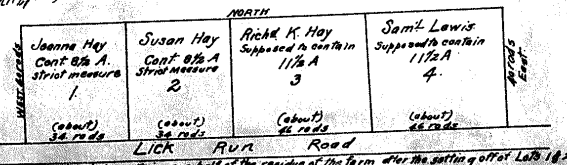 NORTH
Joanna Hay
Cont 8½ A.
Strict measure
1.
(about)
34 rods
Susan Hay
Cont 8½ A
Strict Measure
2
(about)
34 rods
Richd K. Hay
Supposed to contain
11½ A
3
(about)
46 rods
Saml Lewis
Supposed to contain
11½ A
4.
(about)
46 rods
West 40 rods
40 rods
East
LICK RUN Road
half of the residue of the farm after the setting off of Lots 1 & 2